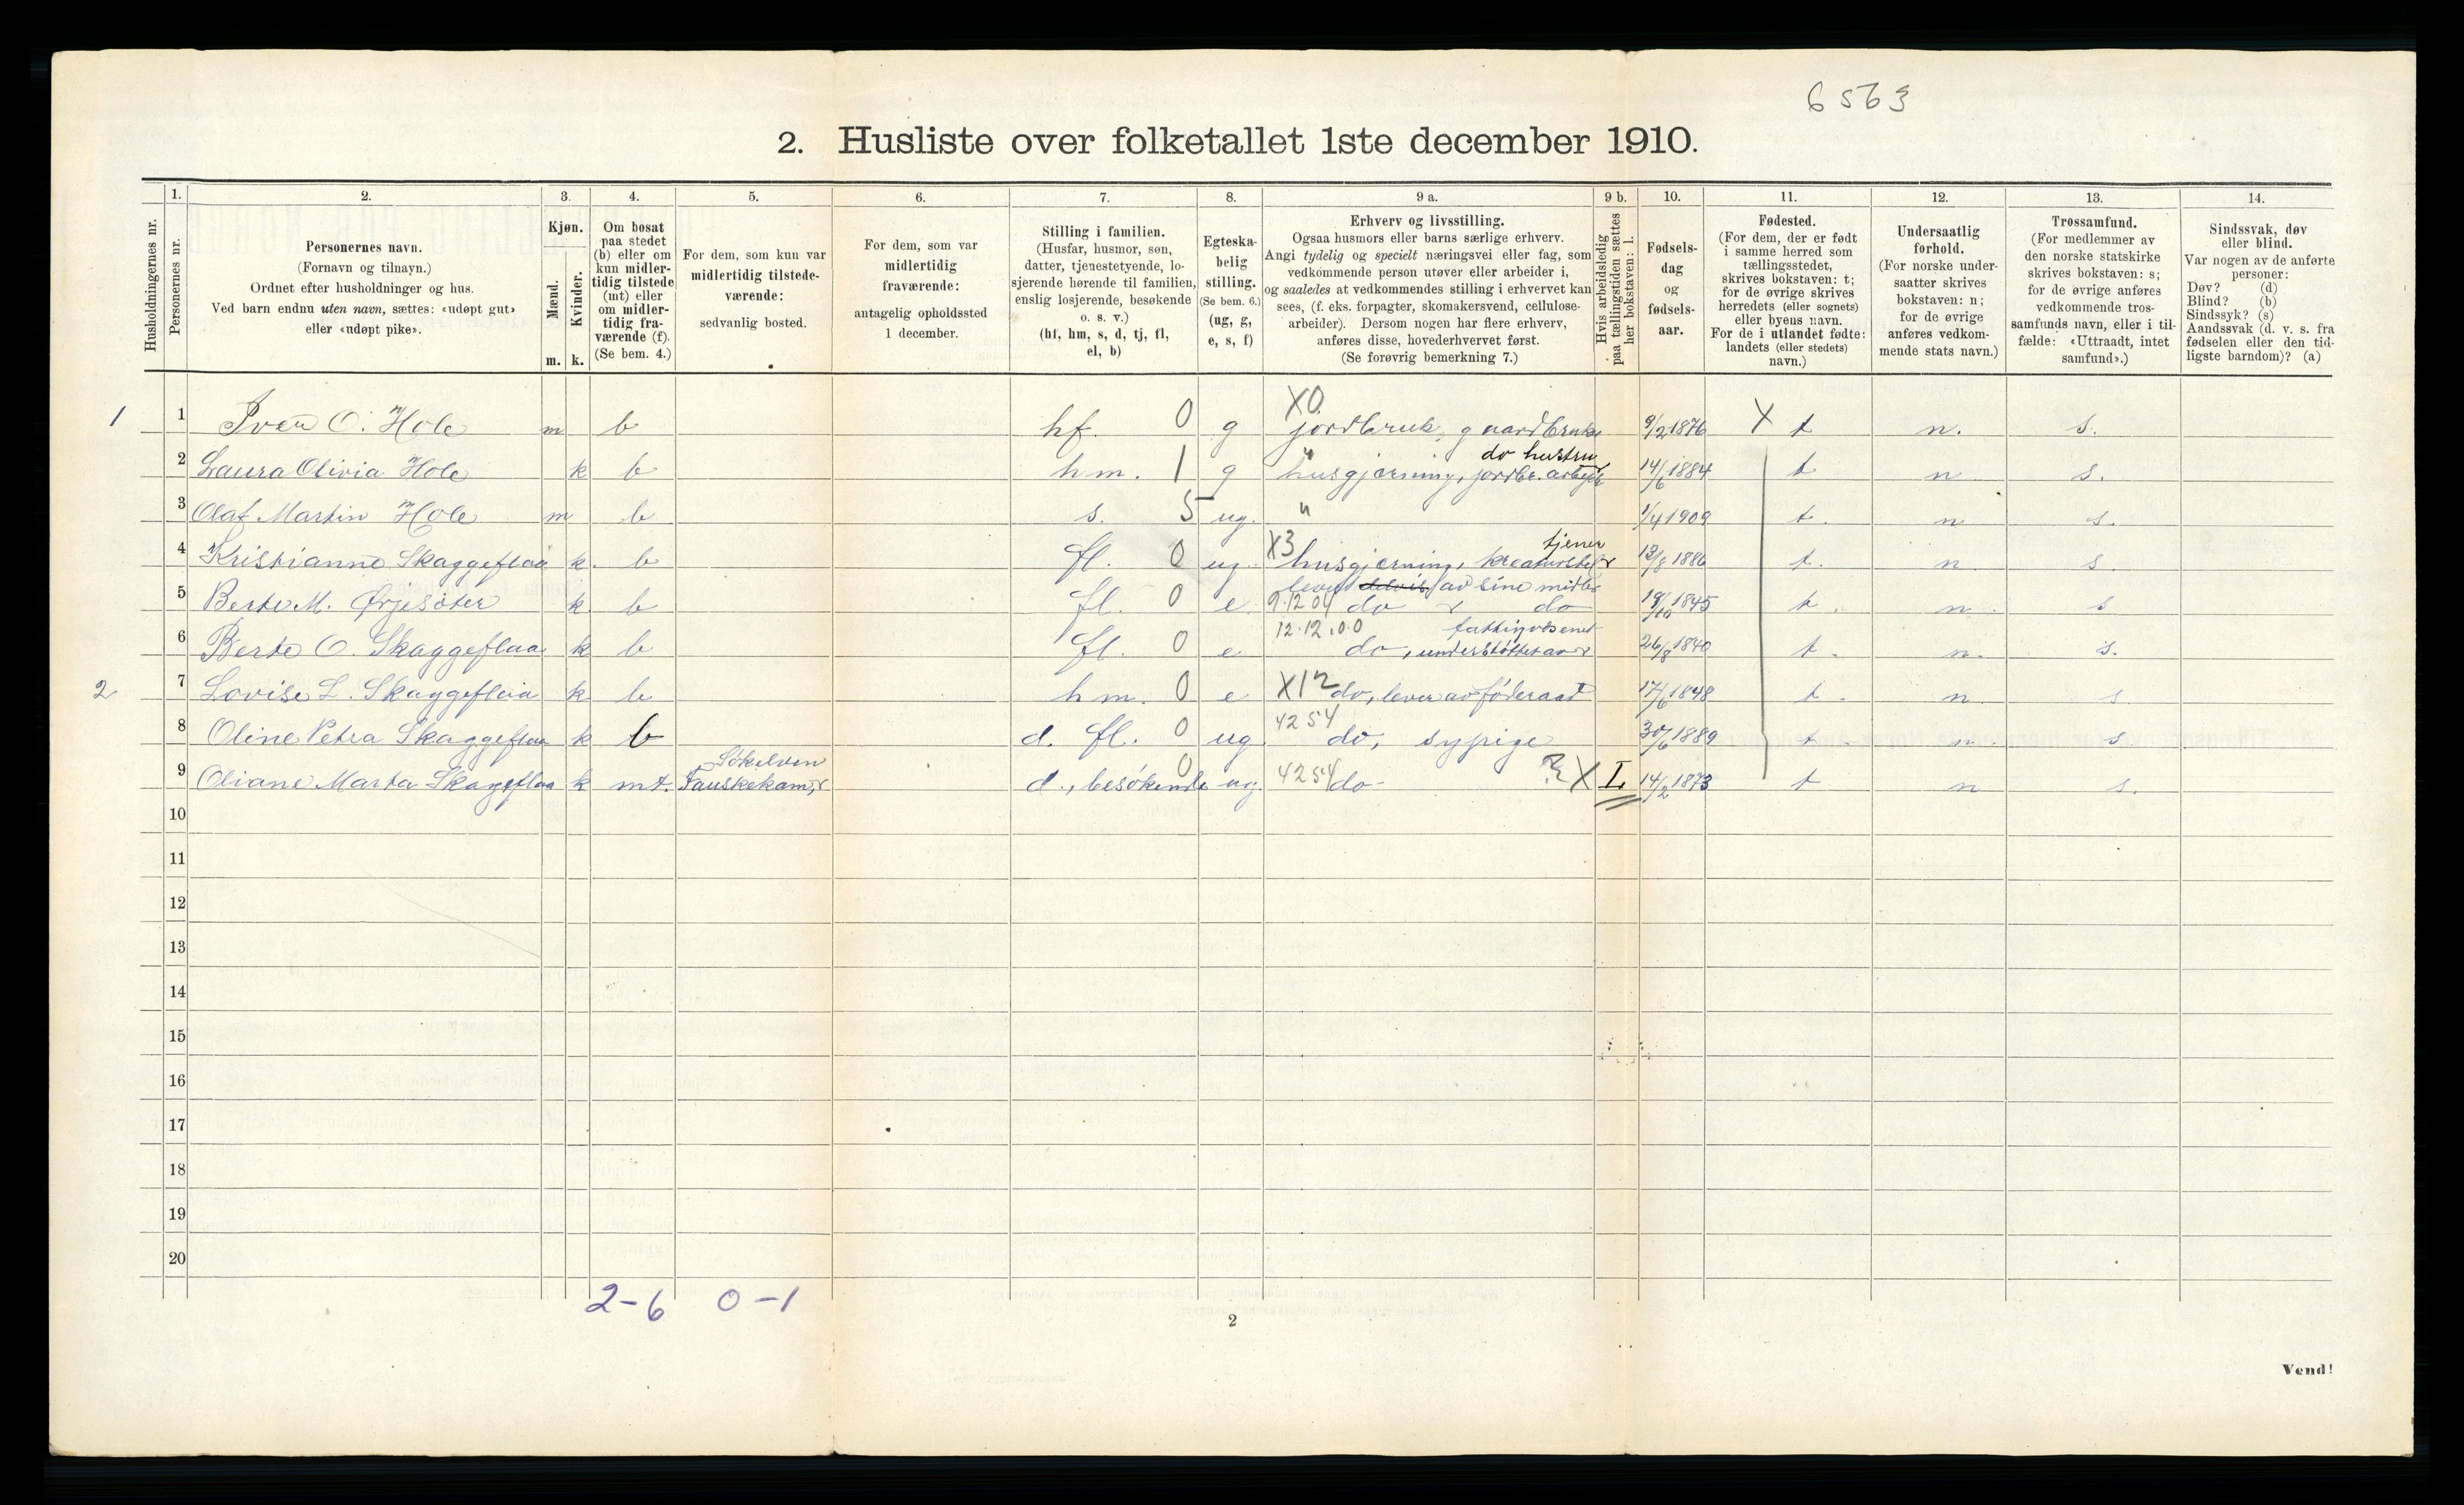 6563
2. Husliste over folketallet 1ste december 1910.
Husholdningernes nr.
1. Personernes nr.
2.
Personernes navn.
(Fornavn og tilnavn.)
Ordnet efter husholdninger og hus.
Ved barn endnu uten navn, sættes: «udøpt gut»
eller «udøpt pike».
3.
Kjøn.
Mænd. m.
Kvinder. k.
4.
Om bosat
paa stedet
(b) eller om
kun midler-
tidig tilstede
(mt) eller
om midler-
tidig fra-
værende (f).
(Se bem. 4.)
5.
For dem, som kun var
midlertidig tilstede-
værende:
sedvanlig bosted.
6.
For dem, som var
midlertidig
fraværende:
antagelig opholdssted
1 december.
7.
Stilling i familien.
(Husfar, husmor, søn,
datter, tjenestetyende, lo-
sjerende hørende til familien,
enslig losjerende, besøkende
o. s. v.)
(hf, hm, s, d, tj, fl,
el, b)
8.
Egteska-
belig
stilling.
(Se bem. 6.)
(ug, g,
e, s, f)
9 a.
Erhverv og livsstilling.
Ogsaa husmors eller barns særlige erhverv.
Angi tydelig og specielt næringsvei eller fag, som
vedkommende person utøver eller arbeider i,
og saaledes at vedkommendes stilling i erhvervet kan
sees, (f. eks. forpagter, skomakersvend, cellulose-
arbeider). Dersom nogen har flere erhverv,
anføres disse, hovederhvervet først.
(Se forøvrig bemerkning 7.)
9 b.
Hvis arbeidsledig
paa tællingstiden sættes
her bokstaven: l.
10.
Fødsels-
dag
og
fødsels-
aar.
11.
Fødested.
(For dem, der er født
i samme herred som
tællingsstedet,
skrives bokstaven: t;
for de øvrige skrives
herredets (eller sognets)
eller byens navn.
For de i utlandet fødte:
landets (eller stedets)
navn.)
12.
Undersaatlig
forhold.
(For norske under-
saatter skrives
bokstaven: n;
for de øvrige
anføres vedkom-
mende stats navn.)
13.
Trossamfund.
(For medlemmer av
den norske statskirke
skrives bokstaven: s;
for de øvrige anføres
vedkommende tros-
samfunds navn, eller i til-
fælde: «Uttraadt, intet
samfund».)
14.
Sindssvak, døv
eller blind.
Var nogen av de anførte
personer:
Døv? (d)
Blind? (b)
Sindssyk? (s)
Aandssvak (d. v. s. fra
fødselen eller den tid-
ligste barndom)? (a)
X0
1 1 Iver O. Hole m b hf. 0 g jordbruk, gaardbruker 9/2 1876 X t n. s.
do hustru
2 Laura Olivia Hole k b hm. 1 g " husgjerning, jordbr. arbeide 14/6 1884 t n s.
3 Olaf Martin Hole m b s. 5 ug. " 1/4 1909 t. n s.
tjener
4 Kristianne Skaggeflaa k. b fl. 0 ug. X3 husgjerning, kreaturstel 13/8 1886 t. n. s.
lever delvis av sine midler
5 Berte M. Ørjesæter k b fl. 0 e 9.12 04 do do 19/10 1845 t. n. s
12.12.00 fattigvæsenet
6 Berte O. Skaggeflaa k b fl. 0 e do, understøttet av 26/8 1840 t. n. s.
2 7 Lovise L. Skaggeflaa k b hm. 0 e X12 do, lever av føderaad 17/6 1848 t. n. s
8 Oline Petra Skaggeflaa k b d. fl. 0 ug. 4254 do, sypige 30/6 1889 t. n. s
Søkelven
9 Oliane Marta Skaggeflaa k mt. Fauskekam, d., besøkende 0 ug. 4254 do X L 14/2 1873 t n s.
10
11
12
13
14
15
16
17
18
19
20
2-6 0-1
2
Vend!